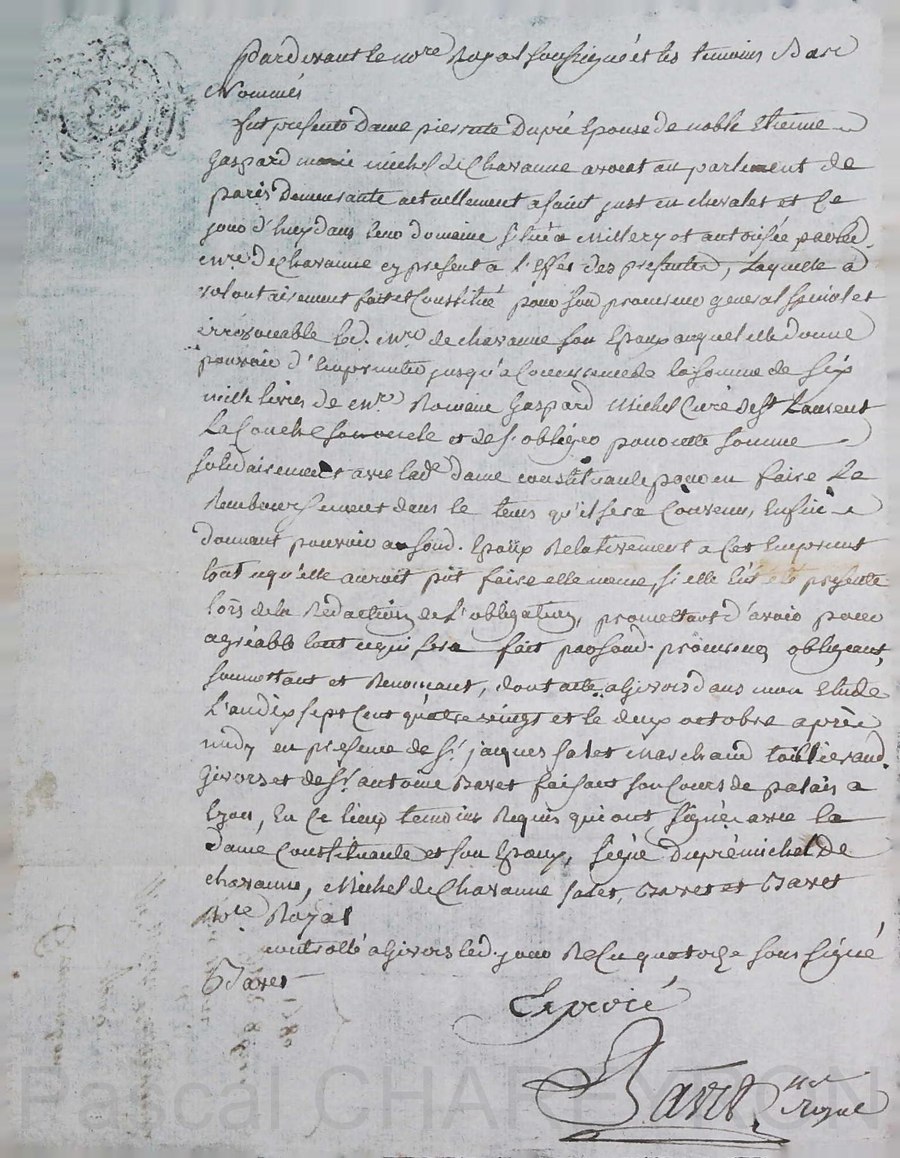 Pardevant le nre Royal soussigné et les temoins Bas
Nommés
fut presente Dame pierrette Dupré Epouse de noble Etienne
Gaspard marie michel de Chavanne avocat au parlement de
paris Demeurante actuellement a saint just en chevalet et Ce
jour d'huy dans leur domaine situé a Millery et autorisée par led.
mre de Chavanne cy present a l'Effet des presentes, Laquelle a
volontairement fait et Constitué pour son procureur general special et
irrevocable led. mre de chavanne son Epoux auquel elle donne
pouvoir d'Emprunter jusqu'a Concurrence de la somme de Six
mille livres de mre Romain Gaspard Michel Curé de st Laurent
La Conche son oncle et de s'obliger pour cette somme
solidairement avec lade Dame constituante pour en faire Le
Remboursement dans le tems qu'il sera Convenu, Enfin
donnant pouvoir a sond. Epoux Relativement a Cet Emprunt
tout ce qu'elle auroit pût faire elle meme, si elle eût été presente
lors de la Rédaction de L'obligation, promettant d'avoir pour
agréable tout ce qui sera fait par sond. procureur, obligeant,
soumettant et Renoncant, dont acte a Givors dans mon Etude
L'an dix sept Cent quatre vingt et le deux octobre après
midy en presence de sr. jacques salet Marchand taillieraud.
Givors et de sr. antoine Baret faisant son Cours de palais a
Lyon, En Ce lieux temoins Requis qui ont Signé avec la
dame Constituante et son Epoux, signé Dupré michel De
chavanne, Michel de Chavanne salet, Baret et Baret
Nore Royal
controllé a Givors led. jour Reçu quatorze sous Signé
Baret
Expedié
Baret nre
royal
Pascal CHAREYRON